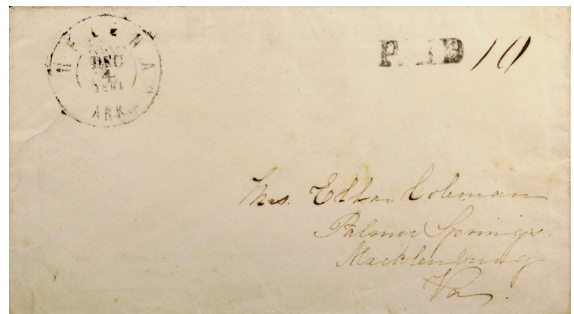 HELENA
DEC
4
1861
ARK.
PAID 10
Mrs. Edbar Coleman
Palmer Springs.
Mecklenburg
Va.